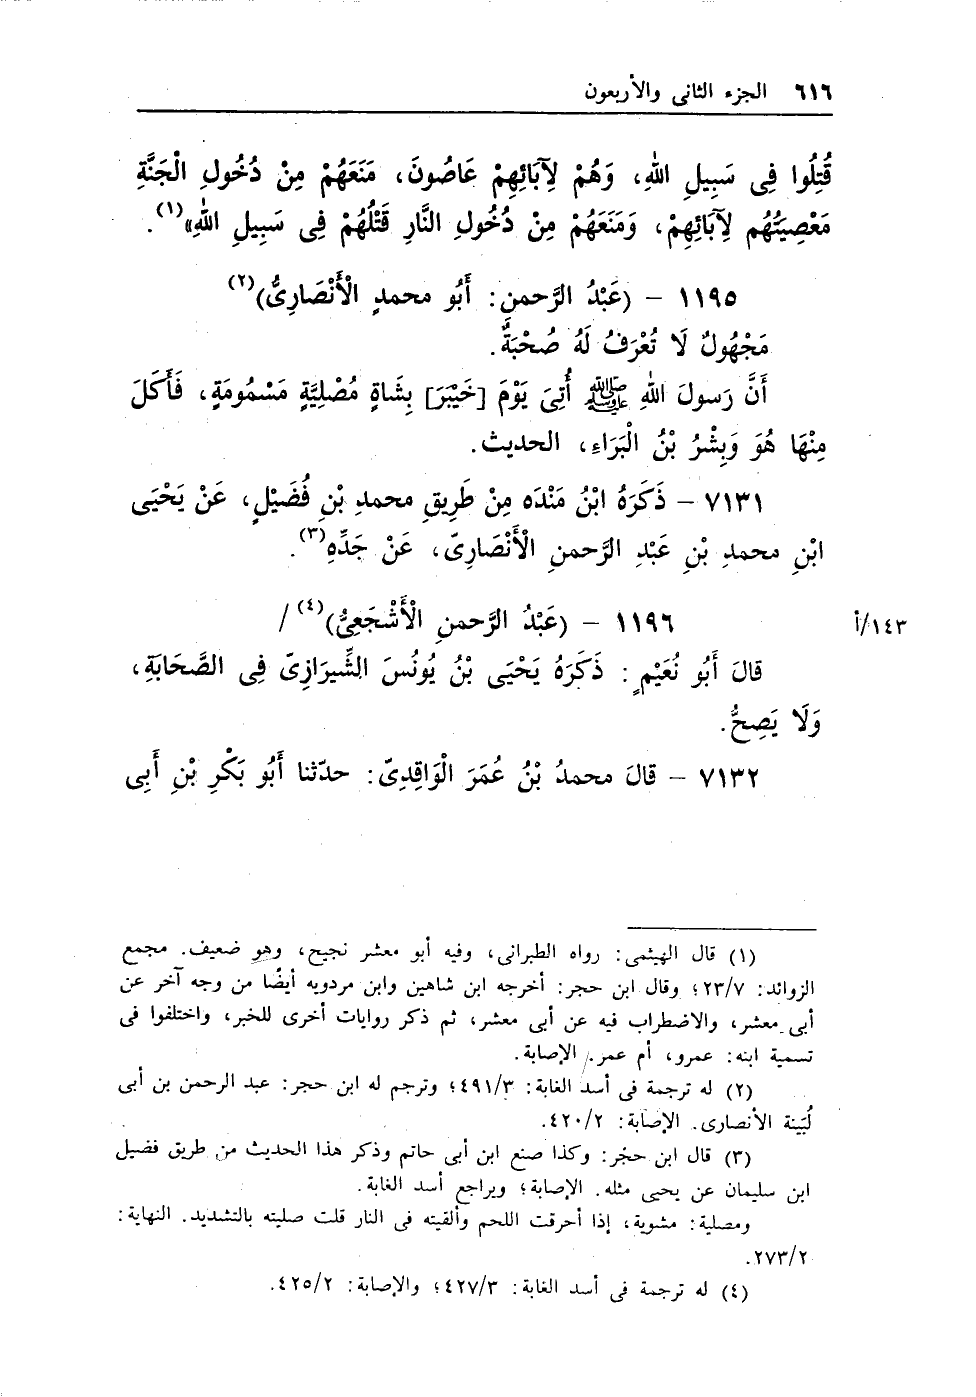 ٦١٦ الجزء الثانى والأربعون
قُتِلُوا فِى سَبِيلِ اللهِ، وَهُمْ لِآبَائِهِمْ عَاصُونَ، مَنَعَهُمْ مِنْ دُخُولِ الْجَنَّةِ
مَعْصِيَتُهُم لِآبَائِهِمْ، وَمَنَعَهُمْ مِنْ دُخُولِ النَّارِ قَتْلُهُمْ فِى سَبِيلِ اللهِ»(١).
١١٩٥ - (عَبْدُ الرَّحمنِ: أَبُو محمدٍ الأَنْصَارِىُّ)(٢)
مَجْهُولٌ لَا تُعْرَفُ لَهُ صُحْبَةٌ.
أَنَّ رَسولَ اللهِ ﷺ أُتِىَ يَوْمَ [خَيْبَرَ] بِشَاةٍ مُصْلِيَّةٍ مَسْمُومَةٍ، فَأَكَلَ
مِنْهَا هُوَ وَبِشْرُ بْنُ الْبَرَاءِ، الحديث.
٧١٣١ - ذَكَرَهُ ابْنُ مَنْدَه مِنْ طَرِيقِ محمدِ بْنِ فُضَيْلٍ، عَنْ يَحْيَى
ابْنِ محمدِ بْنِ عَبْدِ الرَّحمنِ الأَنْصَارِىّ، عَنْ جَدِّهِ(٣).
١١٩٦ - (عَبْدُ الرَّحمنِ الأَشْجَعِىُّ)(٤)/ ١٤٣/أ
قالَ أَبُو نُعَيْمٍ: ذَكَرَهُ يَحْيَى بْنُ يُونُسَ الشِّيرَازِىّ فِى الصَّحَابَةِ،
وَلَا يَصِحُّ.
٧١٣٢ - قالَ محمدُ بْنُ عُمَرَ الْوَاقِدِىّ: حدّثنا أَبُو بَكْرِ بْنِ أَبِى
(١) قال الهيثمى: رواه الطبرانى، وفيه أبو معشر نجيح، وهو ضعيف. مجمع
الزوائد: ٢٣/٧؛ وقال ابن حجر: أخرجه ابن شاهين وابن مردويه أيضًا من وجه آخر عن
أبى معشر، والاضطراب فيه عن أبى معشر، ثم ذكر روايات أخرى للخبر، واختلفوا فى
تسمية ابنه: عمرو، أم عمر. الإصابة.
(٢) له ترجمة فى أسد الغابة: ٤٩١/٣؛ وترجم له ابن حجر: عبد الرحمن بن أبى
لُبَينة الأنصارى. الإصابة: ٤٢٠/٢.
(٣) قال ابن حجر: وكذا صنع ابن أبى حاتم وذكر هذا الحديث من طريق فضيل
ابن سليمان عن يحيى مثله. الإصابة؛ ويراجع أسد الغابة.
ومصلية: مشوية، إذا أحرقت اللحم وألقيته فى النار قلت صليته بالتشديد. النهاية:
٢٧٣/٢.
(٤) له ترجمة فى أسد الغابة: ٤٢٧/٣؛ والإصابة: ٤٢٥/٢.